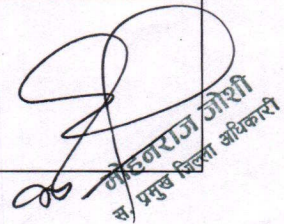 मोहनराज जोशी
स. प्रमुख जिल्ला अधिकारी